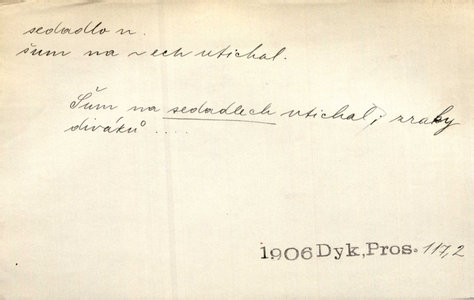 sedadlo n.
šum na ~ech utichal.
Šum na sedadlech utichal; zraky
diváků ....
1906 Dyk, Pros. 117,2